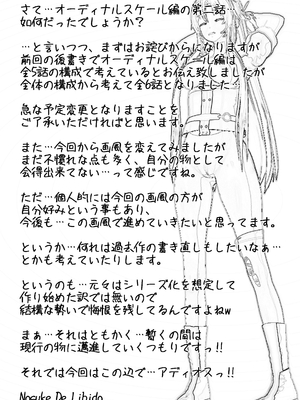 さて…オーディナルスケール編の第二話…
如何だったでしょうか？
…と言いつつ、まずはお詫びからになりますが
前回の後書きでオーディナルスケール編は
全5話の構成で考えているとお伝え致しましたが
全体の構成から考えて全6話となりました…
急な予定変更となりますことを
ご了承いただければと思います。
また…今回から画風を変えてみましたが
まだ不慣れな点も多く、自分の物として
会得出来てない…って感じですね。
ただ…個人的には今回の画風の方が
自分好みという事もあり、
今後も…この画風で進めていきたいと思ってます。
というか…何れは過去作の書き直しもしたいなぁ…
とかも考えたりしています。
というのも…元々はシリーズ化を想定して
作り始めた訳では無いので
結構な勢いで悔恨を残してるんですよねw
まぁ…それはともかく…暫くの間は
現行の物に邁進していくつもりですっ!!
それでは今回はこの辺で…アディオスっ!!
Nosuke De Libido